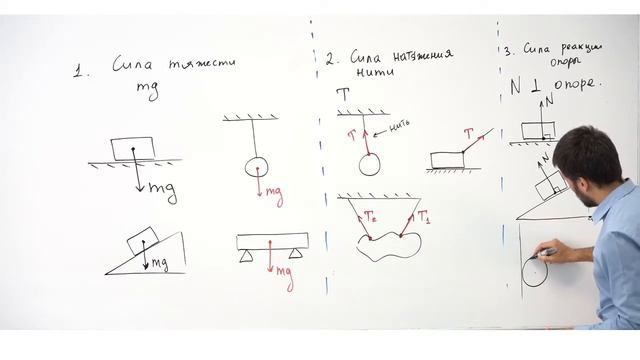 1. Сила тяжести
mg
mg
mg
mg
mg
2. Сила натяжения
нити
T
T
нить
T
T₂
T₁
3. Сила реакции
опоры
N ⊥ опоре.
N
N